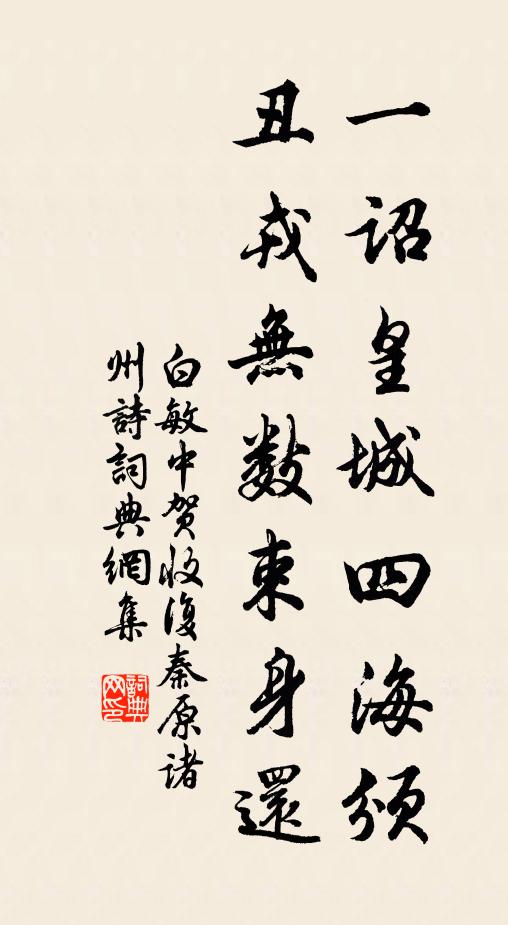 一詔皇城四海頒
丑戎無數束身還
白敏中賀收復秦原諸
州詩詞典網集
詞典網印